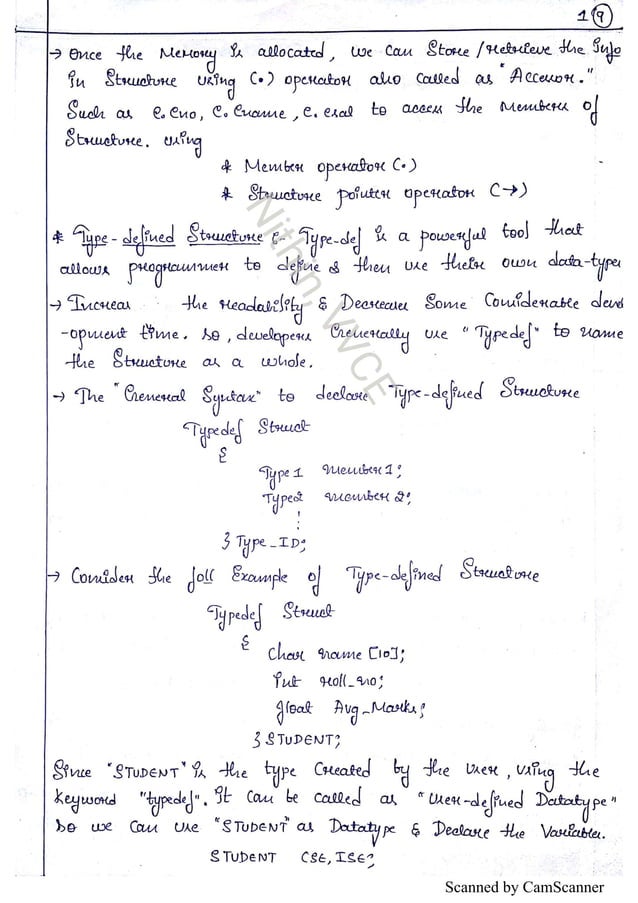 1 9
→ Once the Memory is allocated, we can Store/Retrieve the Info
in Structure using (•) operator also called as "Accessor."
Such as e.eno, e.ename, e.esal to access the Members of
Structure. using
* Member operator (•)
* Structure pointer operator (→)
* Type-defined Structure :- Type-def is a powerful tool that
allows programmer to define & then use their own data-types
→ Increas the readability & Decreases Some Considerable devel
-opment time. so, developers Generally use "Typedef" to name
the Structure as a whole.
→ The "General Syntax" to declare Type-defined Structure
Typedef Struct
{
Type1 member1;
Type2 member2;
⋮
} Type_ID;
→ Consider the foll Example of Type-defined Structure
Typedef Struct
{
Char name [10];
int roll_no;
float Avg_Marks;
} STUDENT;
Since "STUDENT" is the type Created by the user, using the
keyword "typedef". it can be called as "user-defined Datatype"
so we can use "STUDENT" as Datatype & Declare the Variables.
STUDENT CSE, ISE;
Nithin, VVCE
Scanned by CamScanner